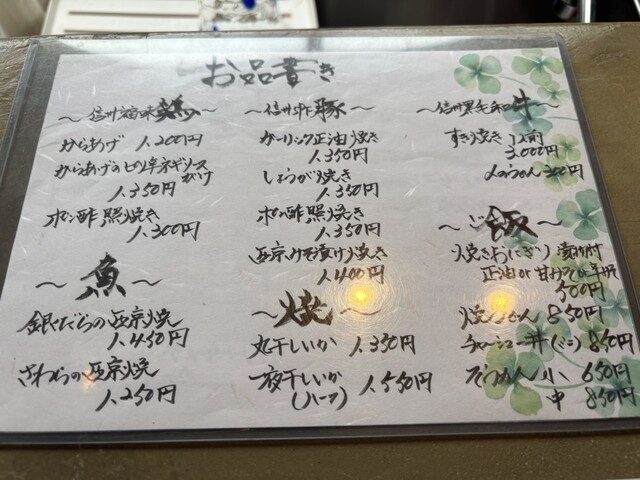 お品書き
～信州香味鶏～
からあげ 1,200円
からあげのピリ辛ネギソースがけ
1,350円
ポン酢照焼き
1,300円
～魚～
銀だらの西京焼
1,450円
さわらの西京焼
1,250円
～信州豚～
ガーリック正油焼き
1,350円
しょうが焼き
1,350円
ポン酢照焼き
1,350円
西京みそ漬け焼き
1,400円
～焼～
丸干しいか 1,350円
一夜干しいか 1,550円
(ハーフ)
～信州黒毛和牛～
すき焼き 1人前
3,000円
〆のうどん 300円
～ご飯～
焼きおにぎり 漬物付
正油 or 甘みそ or 半々
500円
焼うどん 850円
チャーシュー丼(ミニ) 850円
そうめん 小 650円
中 850円